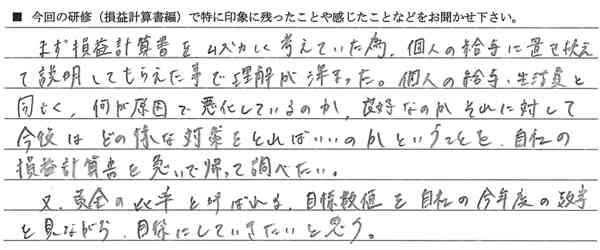 ■ 今回の研修（損益計算書編）で特に印象に残ったことや感じたことなどをお聞かせ下さい。
まず損益計算書をムズカしく考えていた為、個人の給与に置き換え
て説明してもらえた事で理解が深まった。個人の給与、生活費と
同じく、何が原因で悪化しているのか、良好なのかそれに対して
今後はどの様な対策をとればいいのかということを、自社の
損益計算書を急いで帰って調べたい。
又、黄金の比率と呼ばれる、目標数値を自社の今年度の数字
を見ながら、目標にしていきたいと思う。